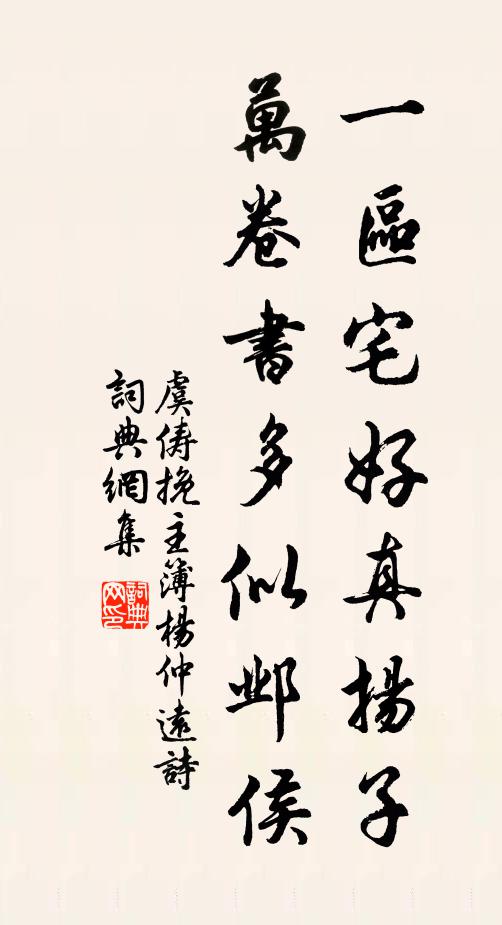 一區宅好真揚子
萬卷書多似邺侯
虞儔挽主簿楊仲遠詩
詞典網集
詞典網印